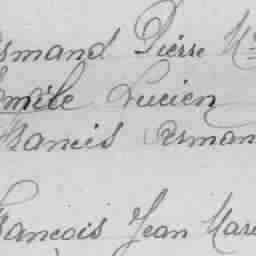 rmand Pierre M
Emile Lucien
Francis Arman
François Jean Mari